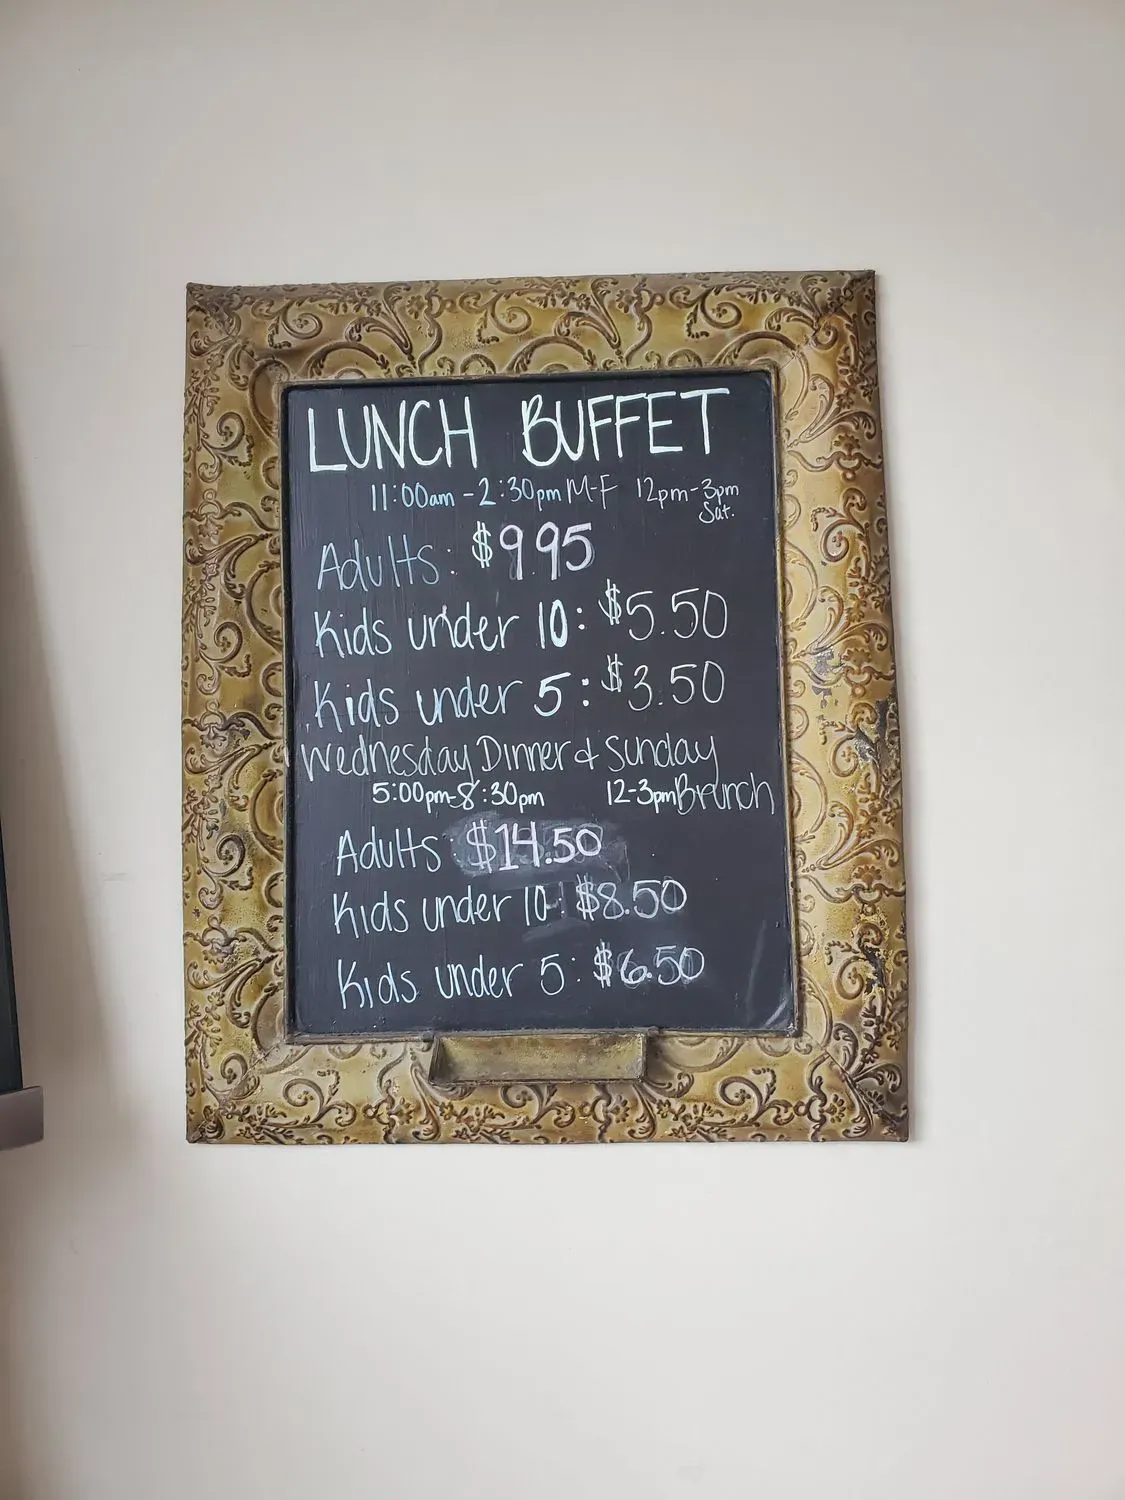 LUNCH BUFFET
11:00am - 2:30pm M-F 12pm-3pm
Sat.
Adults: $9.95
Kids under 10: $5.50
Kids under 5: $3.50
Wednesday Dinner & Sunday
5:00pm-8:30pm 12-3pm Brunch
Adults $14.50
Kids under 10: $8.50
Kids under 5: $6.50